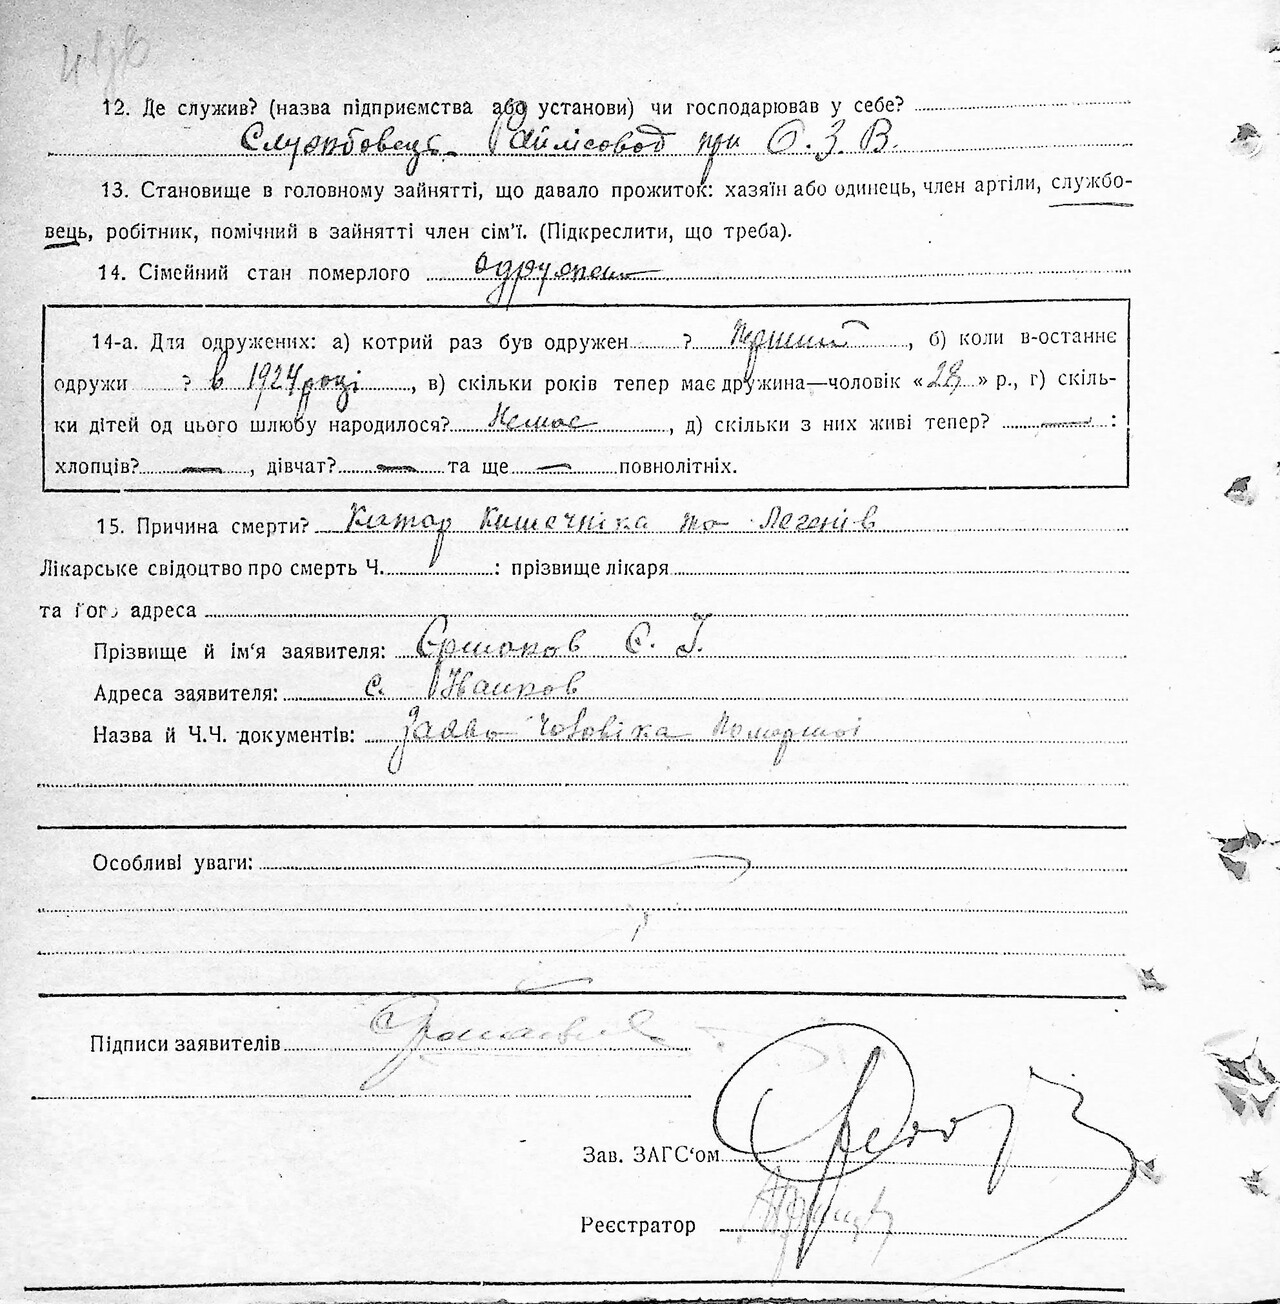 12. Де служив? (назва підприємства або установи) чи господарював у себе?
Службовець Райлісовод при О. З. В.
13. Становище в головному зайнятті, що давало прожиток: хазяїн або одинець, член артіли, службо-
вець, робітник, помічний в зайнятті член сім'ї. (Підкреслити, що треба).
14. Сімейний стан померлого одружена
14-а. Для одружених: а) котрий раз був одружен ? перший , б) коли в-останнє
одружи ? в 1924 році , в) скільки років тепер має дружина—чоловік « 28 » р., г) скіль-
ки дітей од цього шлюбу народилося? Немає , д) скільки з них живі тепер? — :
хлопців? — , дівчат? — та ще — повнолітніх.
15. Причина смерти? Катар Кишечніка та Легенів
Лікарське свідоцтво про смерть Ч. : прізвище лікаря
та його адреса
Прізвище й ім'я заявителя: Єршаков Є. І.
Адреса заявителя: с.
Назва й Ч.Ч. документів: Заява Чоловіка Помершої
Особливі уваги:
Підписи заявителів
Зав. ЗАГС'ом
Реєстратор